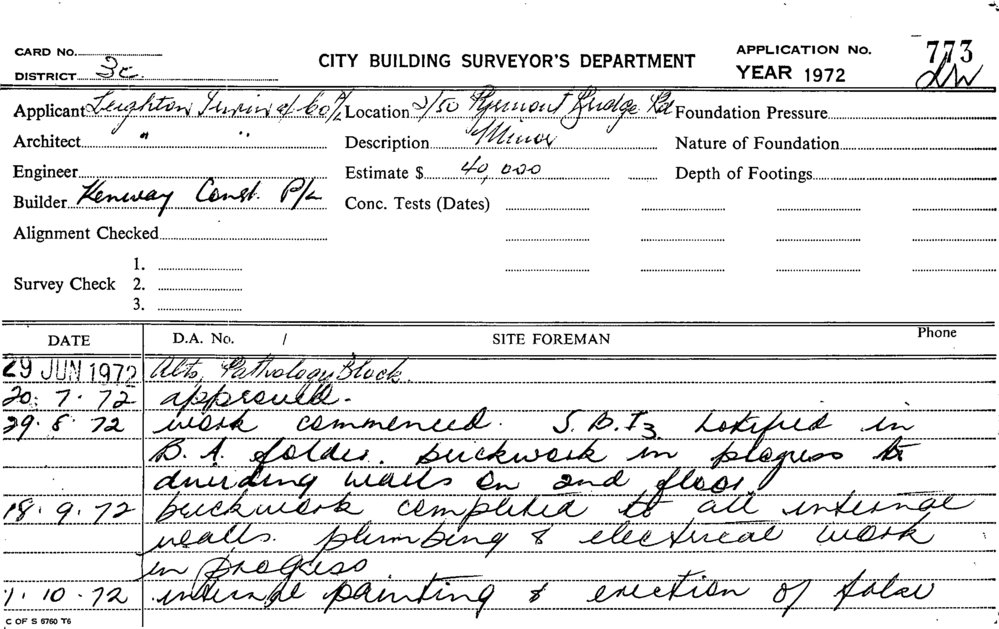 CARD No.
DISTRICT 3c.
CITY BUILDING SURVEYOR'S DEPARTMENT
APPLICATION No. 773
YEAR 1972
Applicant Leighton Irwin & Co P/L Location 2/50 Pyrmont Bridge Rd Foundation Pressure
Architect " " Description Minor Nature of Foundation
Engineer Estimate $ 40,000 Depth of Footings
Builder Kenway Const. P/L Conc. Tests (Dates)
Alignment Checked
1.
Survey Check 2.
3.
DATE D.A. No. / SITE FOREMAN Phone
29 JUN 1972 Alts, Pathology Block.
20. 7. 72 approved.
29. 8. 72 work commenced. S.B.I3 notified in
B.A. folder. brickwork in progress to
dividing walls on 2nd floor
18. 9. 72 brickwork completed to all internal
walls. plumbing & electrical work
in progress
10. 72 internal painting & erection of false
C OF S 6760 T6